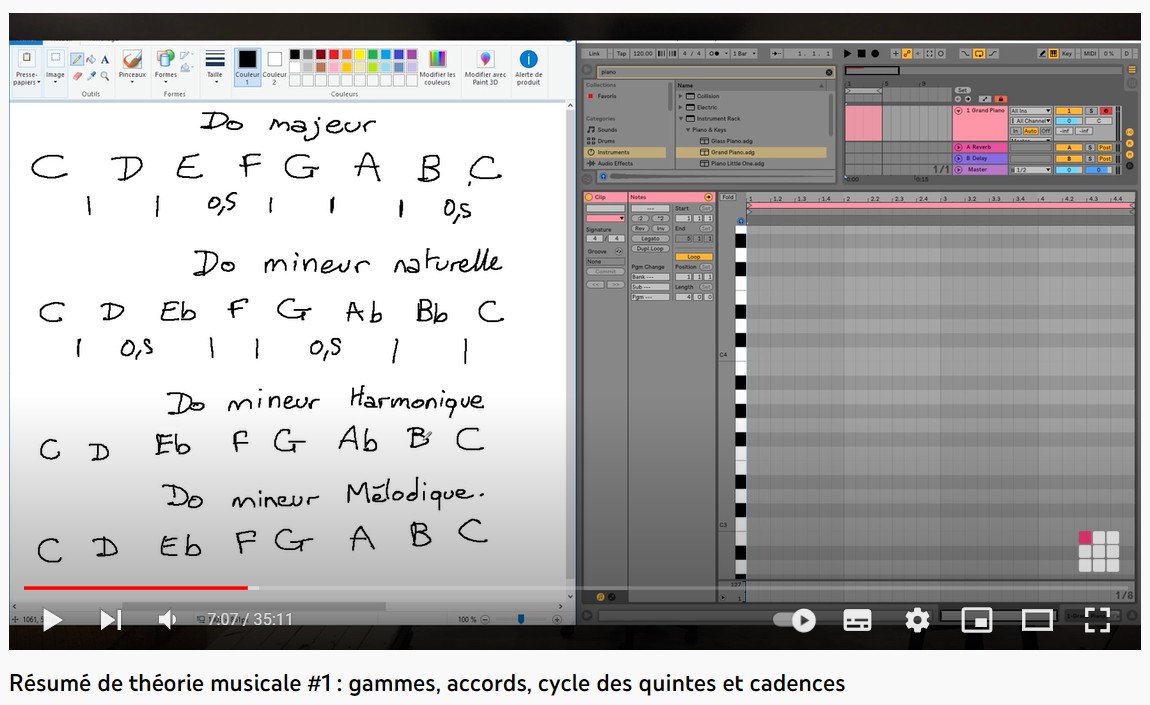 Presse-
papiers
Image
Outils
Pinceaux
Formes
Formes
Taille
Couleur
1
Couleur
2
Couleurs
Modifier les
couleurs
Modifier avec
Paint 3D
Alerte de
produit
Do majeur
C D E F G A B C
1 1 0,5 1 1 1 0,5
Do mineur naturelle
C D Eb F G Ab Bb C
1 0,5 1 1 0,5 1 1
Do mineur Harmonique
C D Eb F G Ab B C
Do mineur Mélodique.
C D Eb F G A B C
100 %
Link Tap 120.00 4 / 4 1 Bar 1. 1. 1 Key MIDI 0 % D
piano
Collections
Favoris
Categories
Sounds
Drums
Instruments
Audio Effects
Name
Collision
Electric
Instrument Rack
Piano & Keys
Glass Piano.adg
Grand Piano.adg
Piano Little One.adg
Set
1 Grand Piano
All Ins
All Channel
In Auto Off
-inf -inf
1 S
0 C
A Reverb A S Post
B Delay B S Post
Master 1/2 0 0
1/1
0:00 0:15
Clip
Signature
4 / 4
Groove
None
Commit
<< >>
Notes
:2 *2
Rev Inv
Legato
Dupl.Loop
Pgm Change
Bank ---
Sub ---
Pgm ---
Start Set
1 1 1
End Set
5 1 1
Loop
Position Set
1 1 1
Length Set
4 0 0
Fold
1 1.2 1.3 1.4 2 2.2 2.3 2.4 3 3.2 3.3 3.4 4 4.2 4.3 4.4
C4
C3
127
1
1/8
7:07 / 35:11
Résumé de théorie musicale #1 : gammes, accords, cycle des quintes et cadences